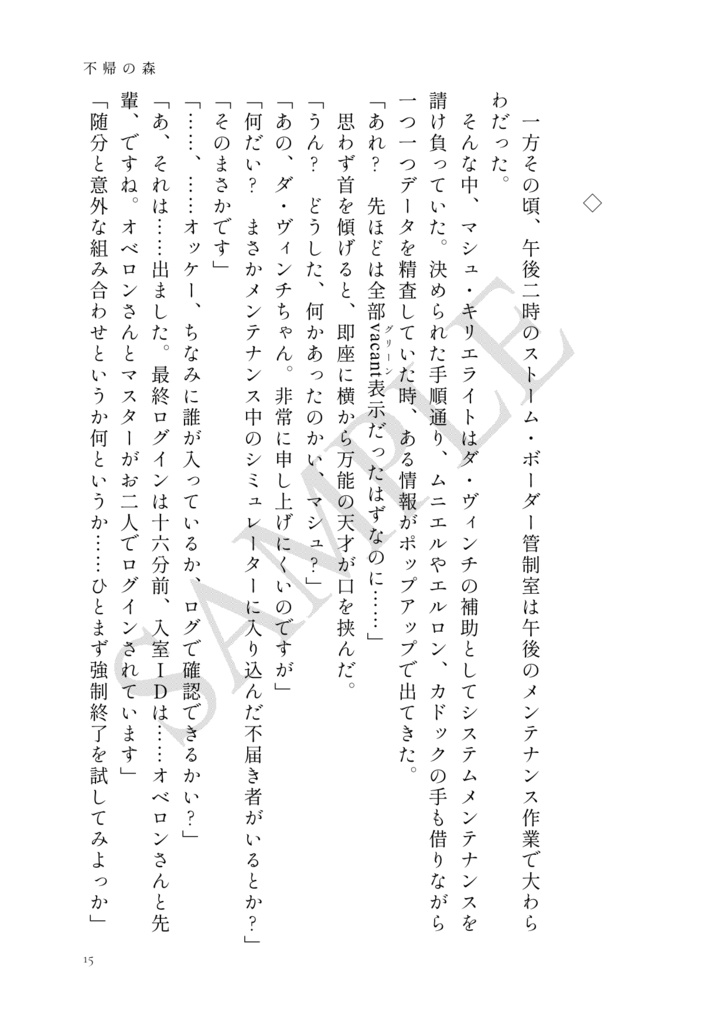 不帰の森
◇
　一方その頃、午後二時のストーム・ボーダー管制室は午後のメンテナンス作業で大わら
わだった。
　そんな中、マシュ・キリエライトはダ・ヴィンチの補助としてシステムメンテナンスを
請け負っていた。決められた手順通り、ムニエルやエルロン、カドックの手も借りながら
一つ一つデータを精査していた時、ある情報がポップアップで出てきた。
「あれ？　先ほどは全部vacant表示だったはずなのに……」
グリーン
　思わず首を傾げると、即座に横から万能の天才が口を挟んだ。
「うん？　どうした、何かあったのかい、マシュ？」
「あの、ダ・ヴィンチちゃん。非常に申し上げにくいのですが」
「何だい？　まさかメンテナンス中のシミュレーターに入り込んだ不届き者がいるとか？」
「そのまさかです」
「……、……オッケー、ちなみに誰が入っているか、ログで確認できるかい？」
「あ、それは……出ました。最終ログインは十六分前、入室ＩＤは……オベロンさんと先
輩、ですね。オベロンさんとマスターがお二人でログインされています」
「随分と意外な組み合わせというか何というか……ひとまず強制終了を試してみよっか」
15
SAMPLE